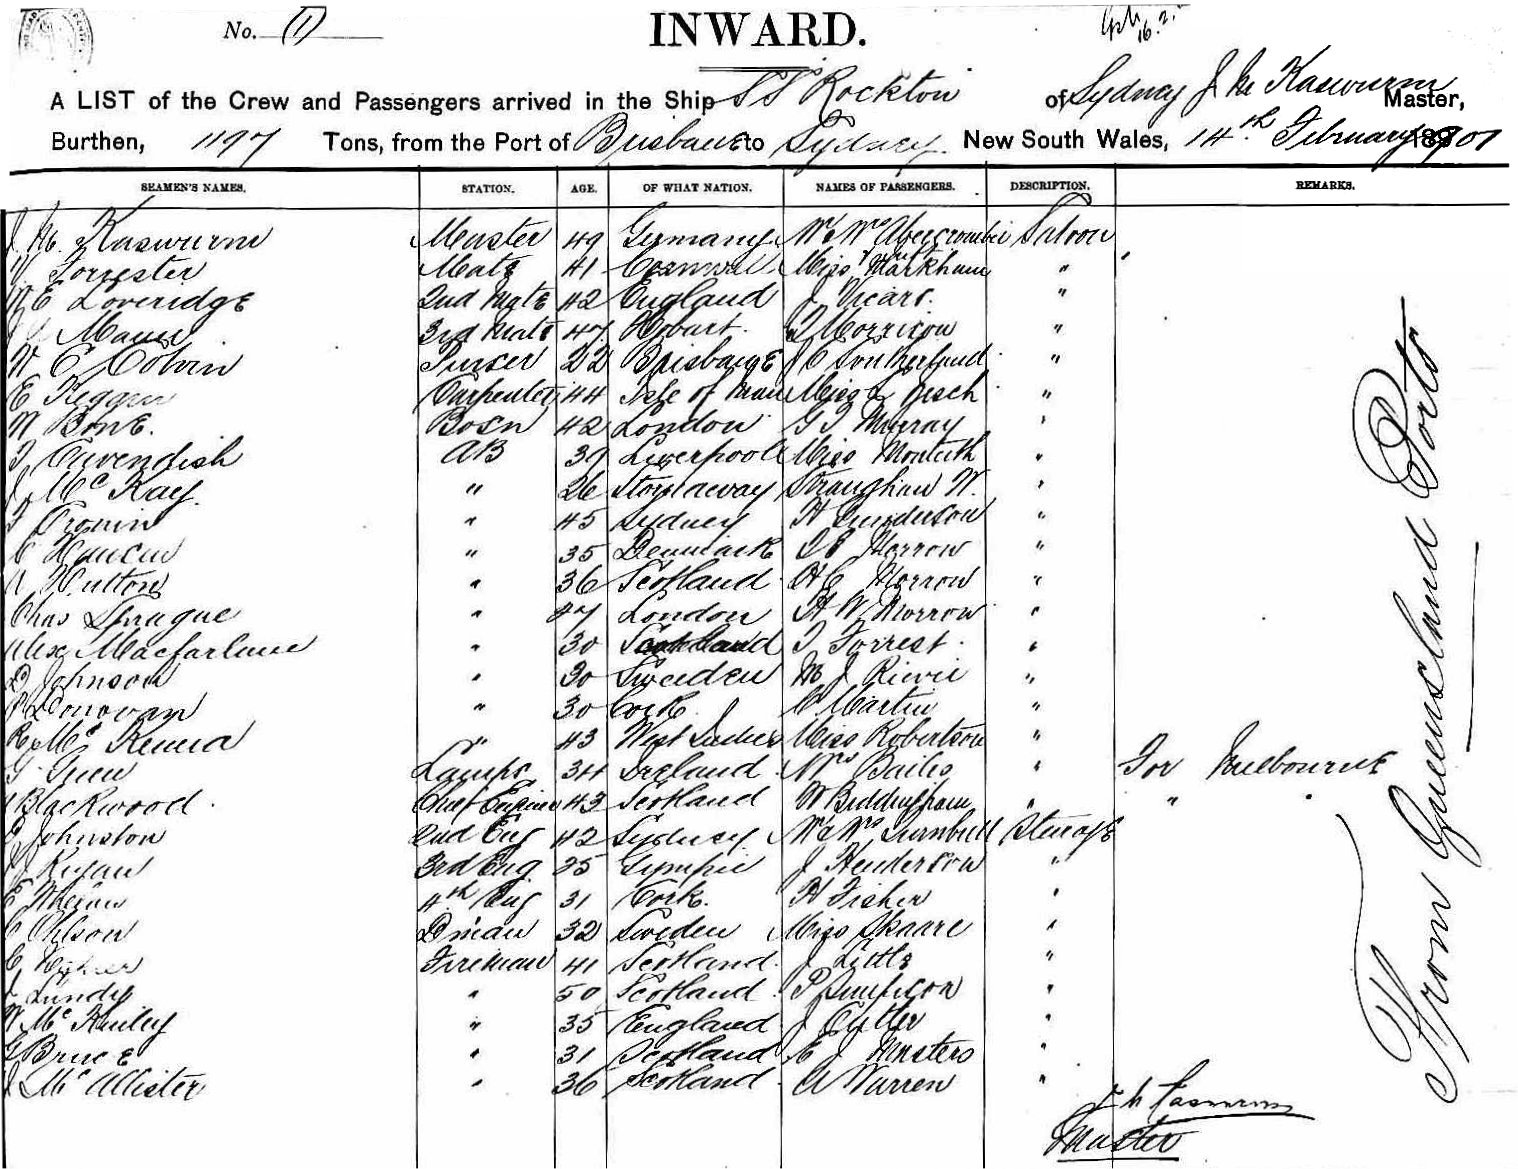 No. (1)
INWARD.
A LIST of the Crew and Passengers arrived in the Ship SS Rockton of Sydney J M Kaswurm Master,
Burthen, 1197 Tons, from the Port of Brisbane to Sydney New South Wales, 14th February 1901
SEAMEN'S NAMES. STATION. AGE. OF WHAT NATION. NAMES OF PASSENGERS. DESCRIPTION. REMARKS.
J M Kaswurm Master 49 Germany Mr Mrs Abercrombie Saloon
Forrester Mate 41 Cornwal Miss Markham "
E Loveridge 2nd Mate 42 England J Vicars "
Mann 3rd Mate 47 Hobart T Morrison "
W C Colvin Purser 22 Brisbane J C Sutherland "
E Keggin Carpenter 44 Isle of Man Miss L Gesch "
W Bone. Bosn 42 London G T Murray "
T Cavendish AB 39 Liverpool Miss Monteith "
J McKay " 26 Stornaway Straughan W. "
T Cronin " 45 Sydney H Gunderson "
C Hansen " 35 Denmark Morrow "
A Hutton " 36 Scotland H C Morrow "
Chas Sprague " 47 London H W Morrow "
Alex Macfarlane " 30 Scotland T Forrest "
Johnson " 30 Sweden M J "
Donovan " 30 Cork C Martin "
R McKenna " 43 West Indies Miss Robertson "
G Green Lamps 34 Ireland Mrs Bailes " For Melbourne
Blackwood Chief Engineer 43 Scotland W Biddingham " " "
Johnston 2nd Eng 42 Sydney Mr & Mrs Turnbull Steerage
J Regan 3rd Eng 25 Gympie J Henderson "
E Whelan 4th Eng 31 Cork. H Fisher "
C Ohlson Dman 32 Sweden Miss Skaare "
C Fireman 41 Scotland J Little "
J Lundy " 50 Scotland P Simpson "
W McKinley " 35 England J Cutler "
G Bruce " 31 Scotland E J Masters "
J McAllister " 36 Scotland A Warren "
J M Kaswurm
Master
From Queensland Ports